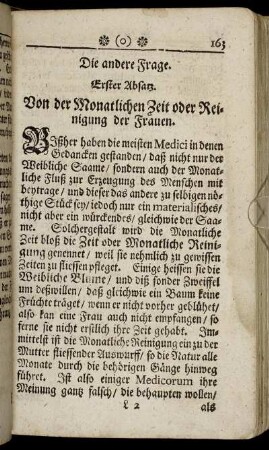 (o) 163
Die andere Frage.
Erster Absatz.
Von der Monatlichen Zeit oder Rei-
nigung der Frauen.
Bißher haben die meisten Medici in denen
Gedancken gestanden / daß nicht nur der
Weibliche Saame / sondern auch der Monat-
liche Fluß zur Erzeugung des Menschen mit
beytrage / und dieser das andere zu selbigen nö-
thige Stück sey / iedoch nur ein materialisches /
nicht aber ein würckendes / gleichwie der Saa-
me. Solchergestalt wird die Monatliche
Zeit bloß die Zeit oder Monatliche Reini-
gung genennet / weil sie nehmlich zu gewissen
Zeiten zu fliessen pfleget. Einige heissen sie die
Weibliche Blume / und diß sonder Zweiffel
um deßwillen / daß gleichwie ein Baum keine
Früchte träget / wenn er nicht vorher geblühet /
also kan eine Frau auch nicht empfangen / so
ferne sie nicht erstlich ihre Zeit gehabt. Im-
mittelst ist die Monatliche Reinigung ein zu der
Mutter fliessender Auswurff / so die Natur alle
Monate durch die behörigen Gänge hinweg
führet. Ist also einiger Medicorum ihre
Meinung gantz falsch / die behaupten wollen /
L 2 als